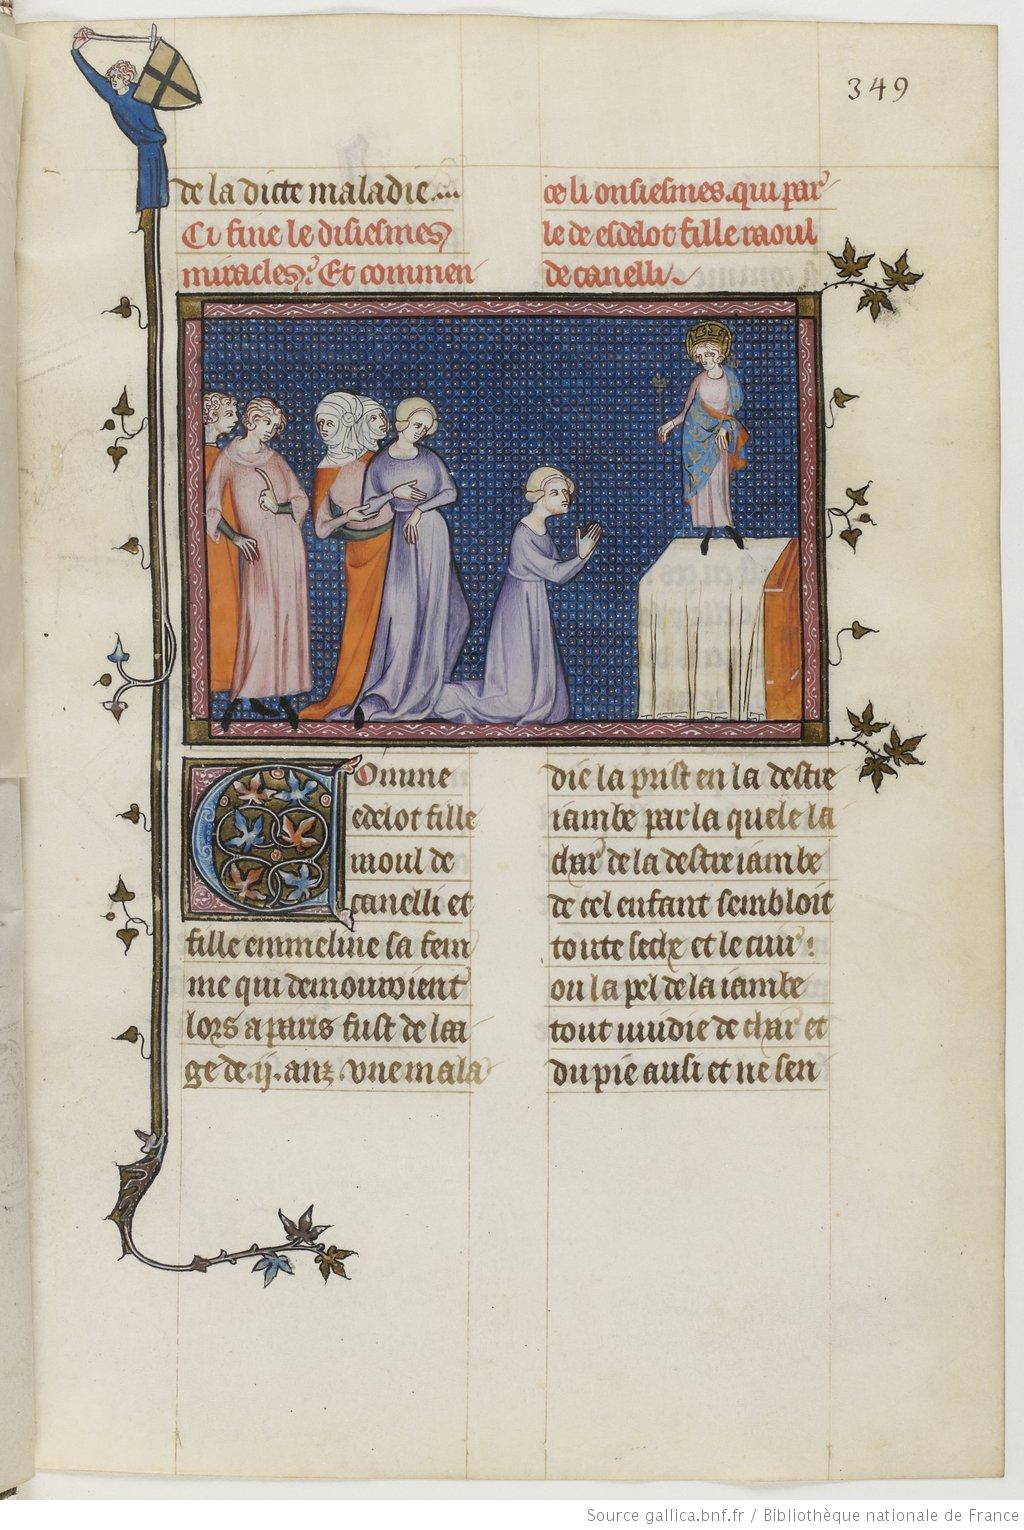 349
de la dicte maladie
Ci fine le disiesmes
miracles. Et commen
ce li onsiesmes. qui par
le de esdelot fille raoul
de canelli
Comme
edelot fille
raoul de
canelli et
fille emmeline sa fem
me qui demouroient
lors a paris fust de laa
ge de .ij. anz. vne mala
die la prist en la destre
iambe par la quele la
char de la destre iambe
de cel enfant sembloit
toute seche et le cuir:
ou la pel de la iambe
tout wuidie de char et
du pie ausi et ne sen
Source gallica.bnf.fr / Bibliothèque nationale de France